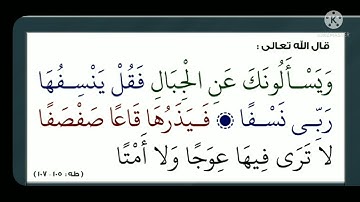 قال الله تعالى :
وَيَسْأَلُونَكَ عَنِ الْجِبَالِ فَقُلْ يَنْسِفُهَا
رَبِّي نَسْفًا ۝ فَيَذَرُهَا قَاعًا صَفْصَفًا
لَا تَرَى فِيهَا عِوَجًا وَلَا أَمْتًا
(طه: ١٠٥-١٠٧)